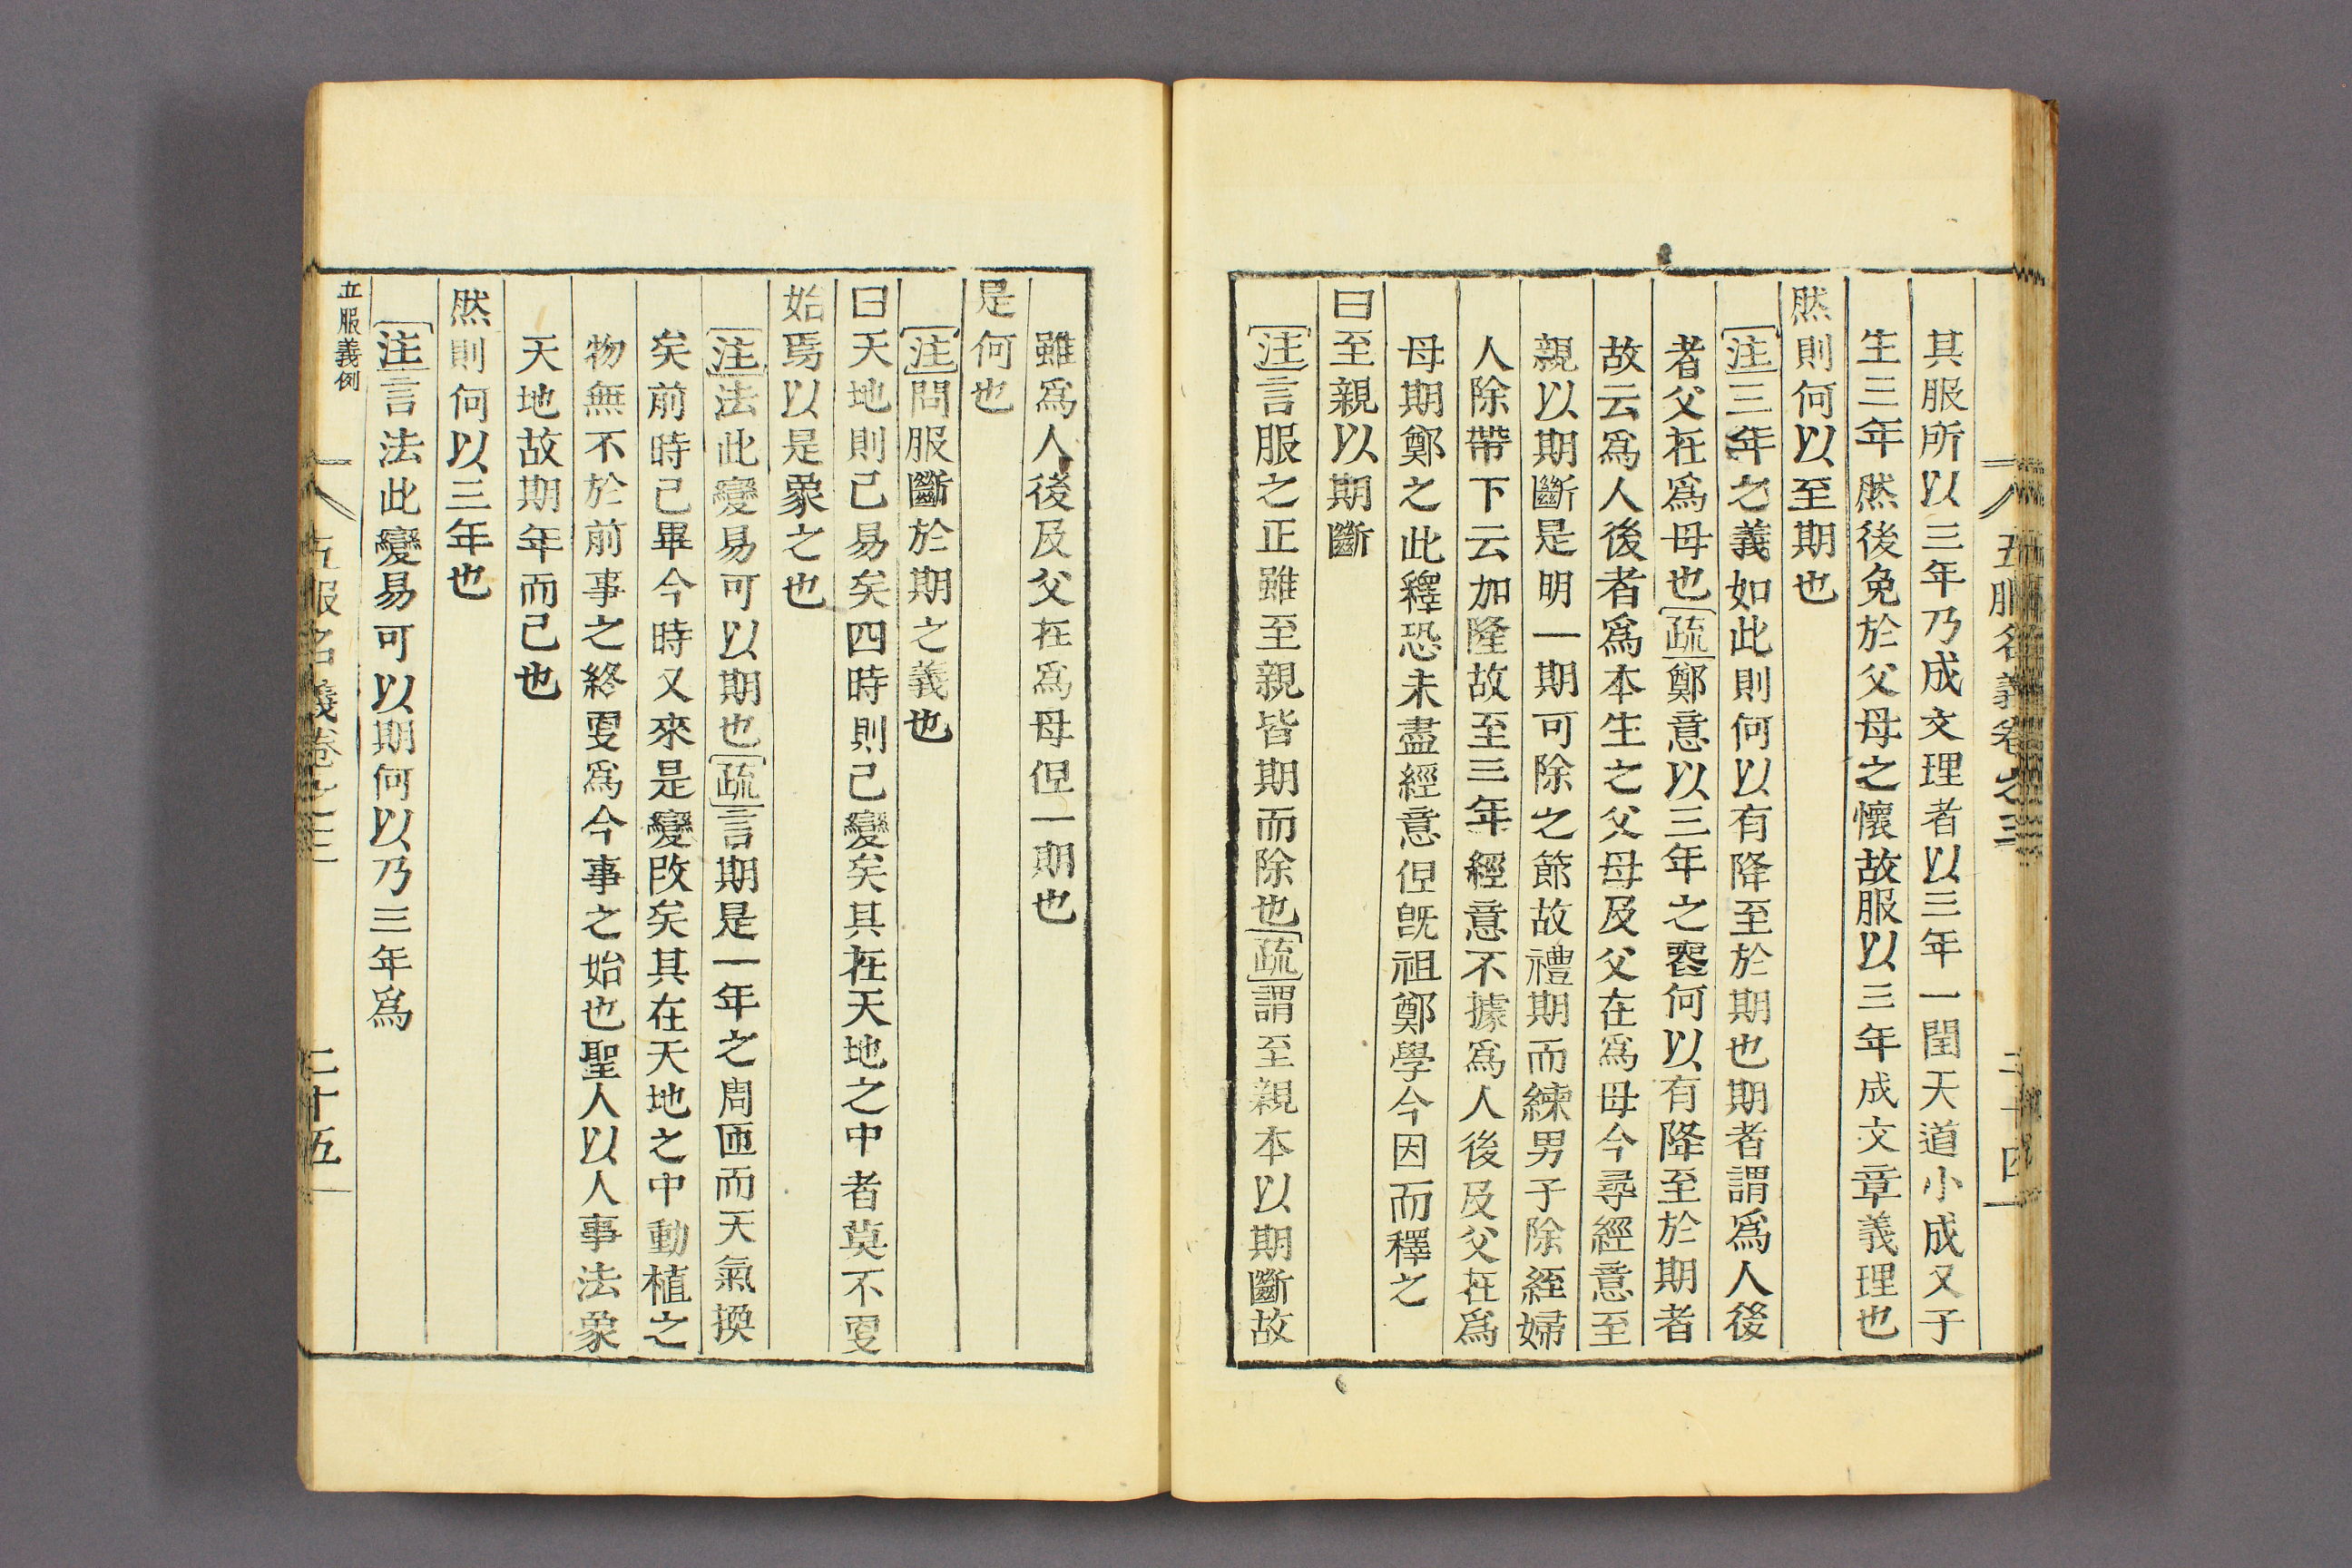 五服名義卷之三 二十四
其服所以三年乃成文理者以三年一閏天道小成又子
生三年然後免於父母之懷故服以三年成文章義理也
然則何以至期也
注三年之義如此則何以有降至於期也期者謂爲人後
者父在爲母也疏鄭意以三年之喪何以有降至於期者
故云爲人後者爲本生之父母及父在爲母今尋經意至
親以期斷是明一期可除之節故禮期而練男子除絰婦
人除帶下云加隆故至三年經意不據爲人後及父在爲
母期鄭之此釋恐未盡經意但既祖鄭學今因而釋之
曰至親以期斷
注言服之正雖至親皆期而除也疏謂至親本以期斷故
雖爲人後及父在爲母但一期也
是何也
注問服斷於期之義也
曰天地則已易矣四時則已變矣其在天地之中者莫不更
始焉以是象之也
注法此變易可以期也疏言期是一年之周匝而天氣換
矣前時已畢今時又來是變改矣其在天地之中動植之
物無不於前事之終更爲今事之始也聖人以人事法象
天地故期年而已也
然則何以三年也
注言法此變易可以期何以乃三年爲
五服義例
五服名義卷之三 二十五